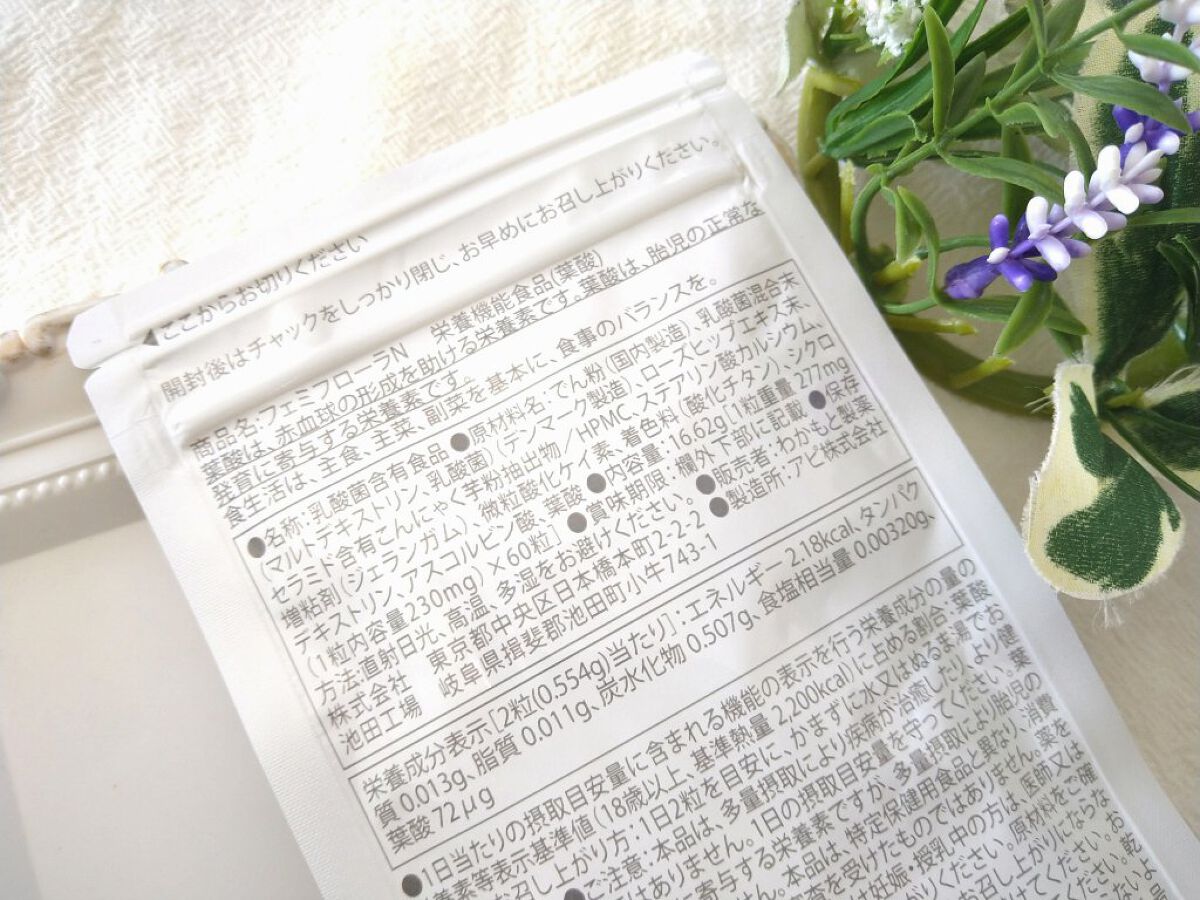 ここからお切りください
開封後はチャックをしっかり閉じ、お早めにお召し上がりください。
商品名:フェミフローラN 栄養機能食品(葉酸)
葉酸は、赤血球の形成を助ける栄養素です。葉酸は、胎児の正常な
発育に寄与する栄養素です。
食生活は、主食、主菜、副菜を基本に、食事のバランスを。
●名称:乳酸菌含有食品 ●原材料名:でん粉(国内製造)、乳酸菌混合末
(マルトデキストリン、乳酸菌)(デンマーク製造)、ローズヒップエキス末、
セラミド含有こんにゃく芋粉抽出物/HPMC、ステアリン酸カルシウム、
増粘剤(ジェランガム)、微粒酸化ケイ素、着色料(酸化チタン)、シクロ
デキストリン、アスコルビン酸、葉酸 ●内容量:16.62g[1粒重量 277mg
(1粒内容量230mg)×60粒] ●賞味期限:欄外下部に記載 ●保存
方法:直射日光、高温、多湿をお避けください。 ●販売者:わかもと製薬
株式会社 東京都中央区日本橋本町2-2-2 ●製造所:アピ株式会社
池田工場 岐阜県揖斐郡池田町小牛743-1
栄養成分表示[2粒(0.554g)当たり]:エネルギー 2.18kcal、タンパク
質 0.013g、脂質 0.011g、炭水化物 0.507g、食塩相当量 0.00320g、
葉酸 72μg
●1日当たりの摂取目安量に含まれる機能の表示を行う栄養成分の量の
養素等表示基準値(18歳以上、基準熱量 2,200kcal)に占める割合:葉酸
召し上がり方:1日2粒を目安に、かまずに水又はぬるま湯でお
●ご注意:本品は、多量摂取により疾病が治癒したり、より健
はありません。1日の摂取目安量を守ってください。葉
寄与する栄養素ですが、多量摂取により胎児の
ん。本品は、特定保健用食品と異なり、消費
審査を受けたものではありません。薬を
妊娠・授乳中の方は、医師又は
がりください。原材料をご確
お召し上がりにならな
けてください。乾